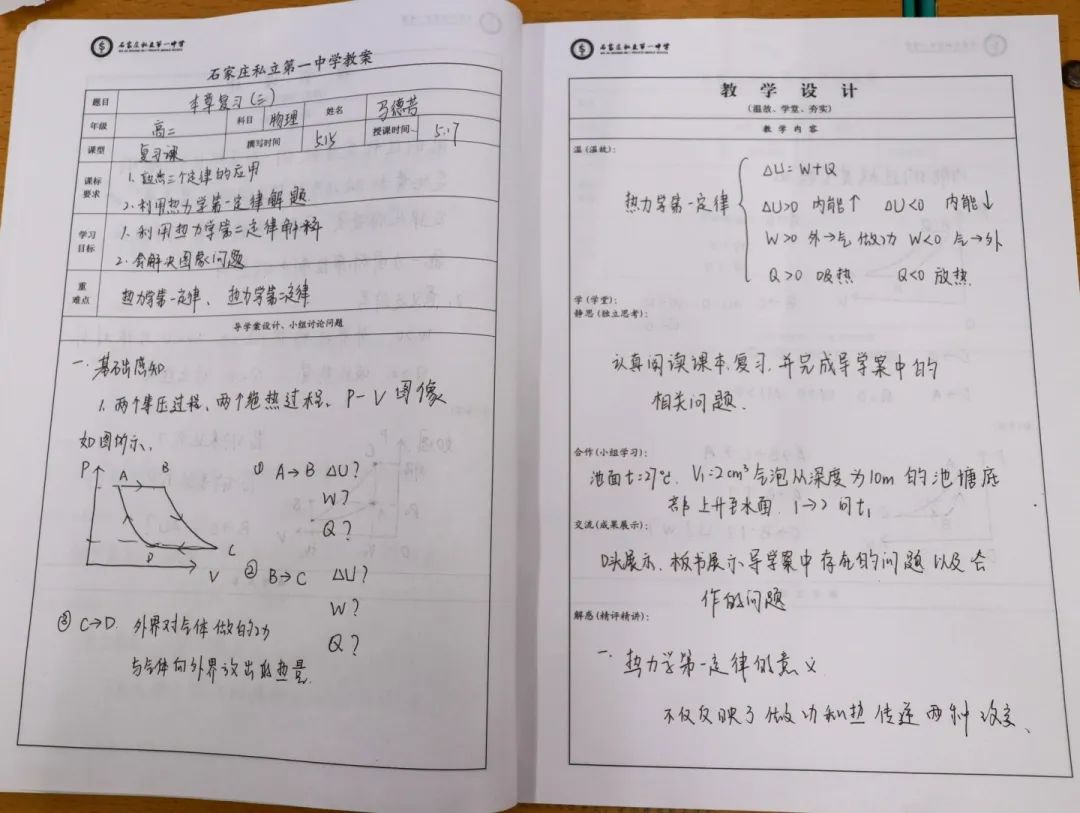 石家庄私立第一中学
石家庄私立第一中学教案
题目 本章复习(三)
年级 高二 科目 物理 姓名 马德芳
课型 复习课 撰写时间 5.15 授课时间 5.17
课标要求
1. 三个定律的应用
2. 利用热力学第一定律解题.
学习目标
1. 利用热力学第二定律解释
2. 会解决图象问题
重难点
热力学第一定律、热力学第二定律
导学案设计、小组讨论问题
一. 基础感知
1. 两个等压过程、两个绝热过程、P-V图像
如图所示、
P A B
D C
V
① A→B ΔU?
W?
Q?
② B→C ΔU?
W?
Q?
③ C→D. 外界对气体做的功
与气体向外界放出的热量.
石家庄私立第一中学
教学设计
(温故、学堂、夯实)
教学内容
温(温故):
热力学第一定律
ΔU=W+Q
ΔU>0 内能↑ ΔU<0 内能↓
W>0 外→气 做功 W<0 气→外
Q>0 吸热 Q<0 放热.
学(学堂):
静思(独立思考):
认真阅读课本.复习.并完成导学案中的
相关问题.
合作(小组学习):
池面t=27℃. V₁=2cm³气泡从深度为10m的池塘底
部上升至水面. 1→2 同t₁
交流(成果展示):
口头展示、板书展示导学案中存在的问题以及合
作的问题
解惑(精评精讲):
一. 热力学第一定律的意义
不仅反映了做功和热传递两种改变、